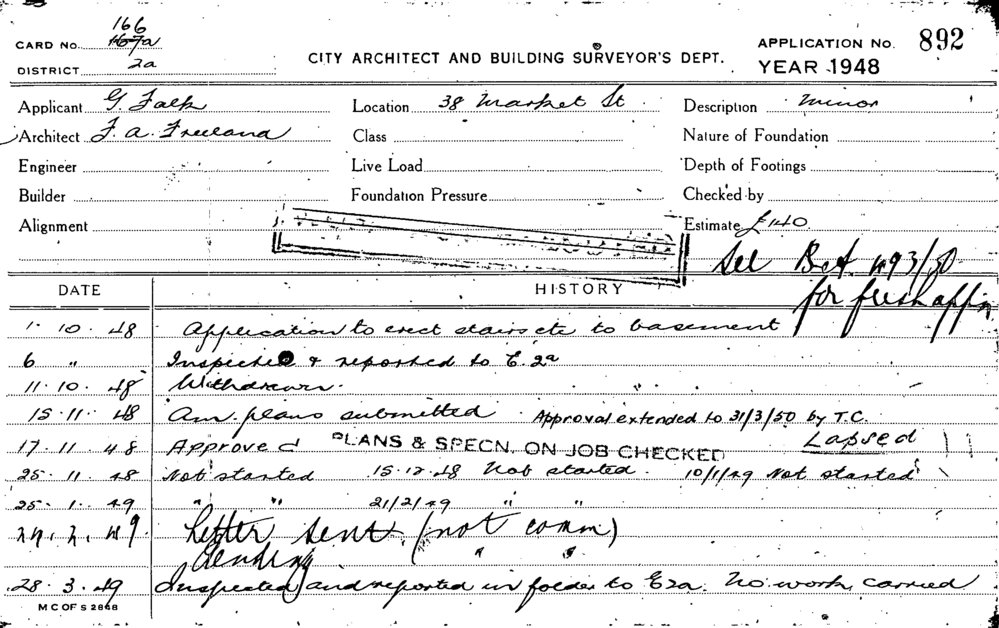 166
CARD NO. 167a
DISTRICT 2a
CITY ARCHITECT AND BUILDING SURVEYOR'S DEPT.
APPLICATION NO. 892
YEAR 1948
Applicant G. Falk Location 38 Market St. Description Minor
Architect F. A. Freeland Class Nature of Foundation
Engineer Live Load Depth of Footings
Builder Foundation Pressure Checked by
Alignment Estimate £140
See Bet. 493/50
for fresh appn
DATE HISTORY
1. 10. 48 Application to erect stairs etc to basement
6 " Inspected & reported to E.2a
11. 10. 48 Withdrawn.
15. 11. 48 Am. plans submitted Approval extended to 31/3/50 by T.C.
Lapsed
17. 11. 48 Approved PLANS & SPECN. ON JOB CHECKED
25. 11. 48 Not started 15. 12. 48 Not started. 10/1/49 Not started
25. 1. 49 " " 21/2/49 " "
24. 2. 49. Letter sent. (not comm)
Pending " "
28. 3. 49 Inspected and reported in folder to E2a. No work carried
M C OF S 2848